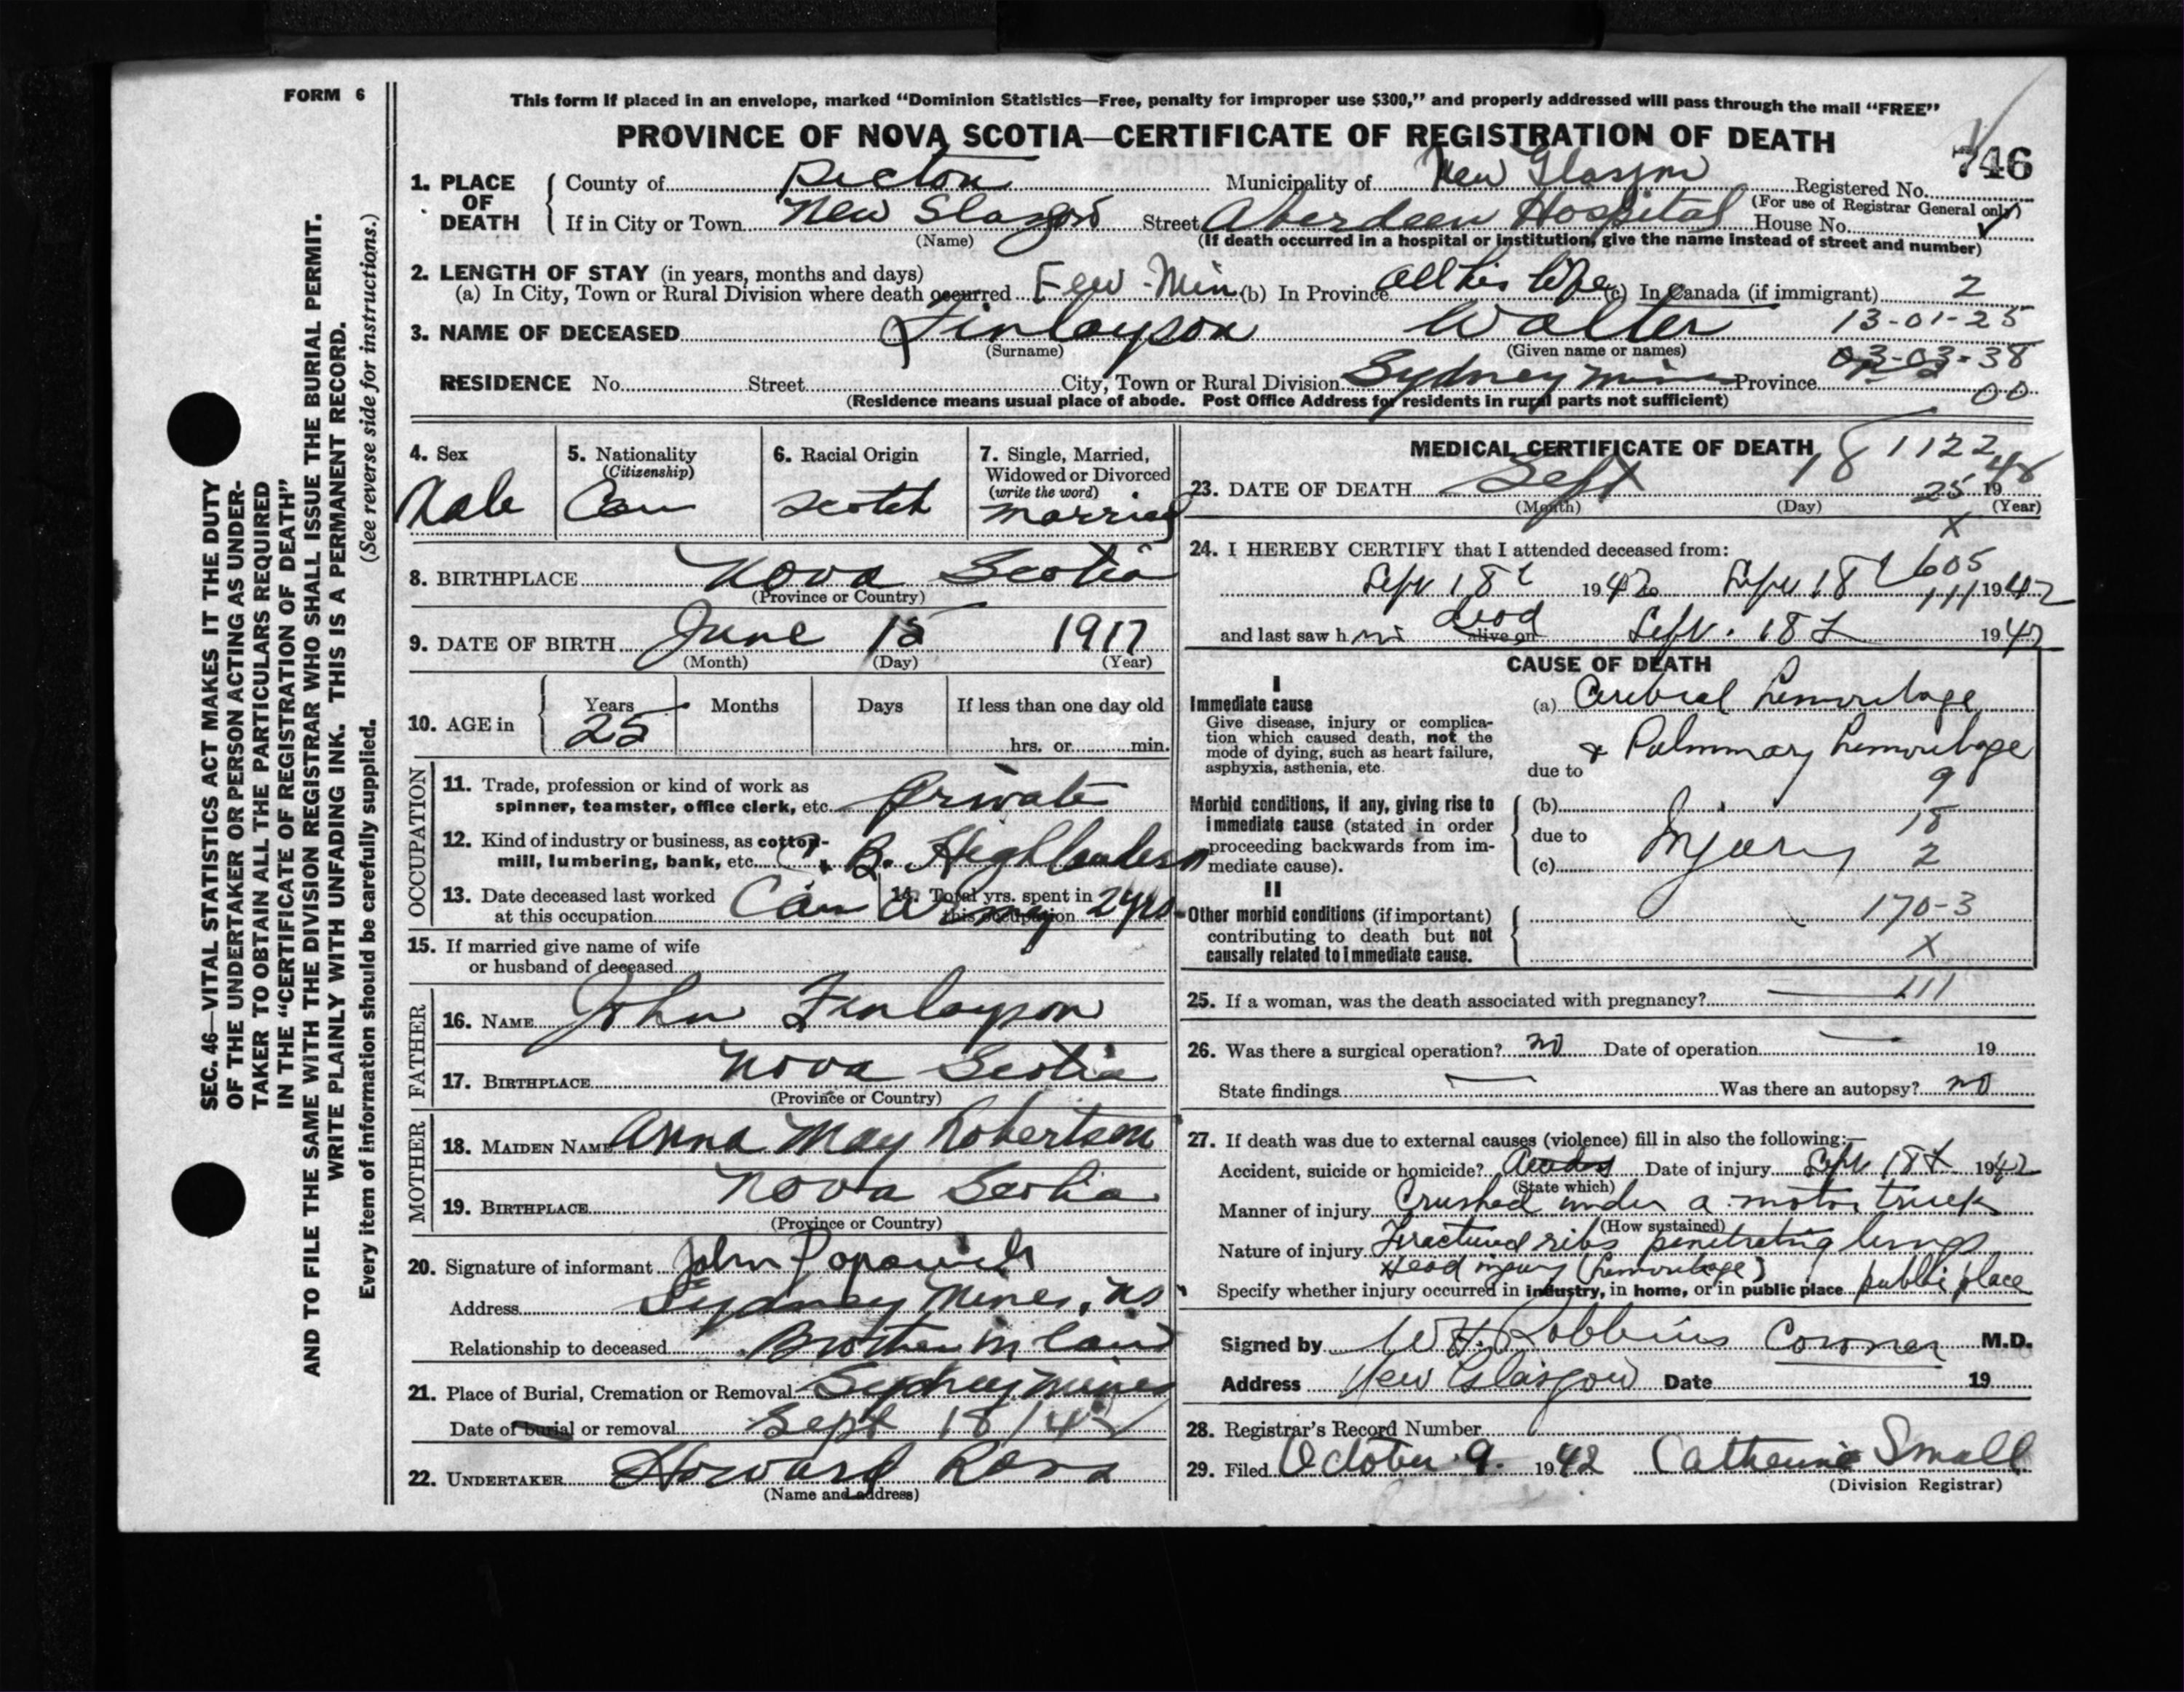 FORM 6
SEC. 46—VITAL STATISTICS ACT MAKES IT THE DUTY
OF THE UNDERTAKER OR PERSON ACTING AS UNDER-
TAKER TO OBTAIN ALL THE PARTICULARS REQUIRED
IN THE "CERTIFICATE OF REGISTRATION OF DEATH"
AND TO FILE THE SAME WITH THE DIVISION REGISTRAR WHO SHALL ISSUE THE BURIAL PERMIT.
WRITE PLAINLY WITH UNFADING INK. THIS IS A PERMANENT RECORD.
Every item of information should be carefully supplied. (See reverse side for instructions.)
This form if placed in an envelope, marked "Dominion Statistics—Free, penalty for improper use $300," and properly addressed will pass through the mail "FREE"
PROVINCE OF NOVA SCOTIA—CERTIFICATE OF REGISTRATION OF DEATH
746
1. PLACE OF DEATH County of Pictou Municipality of New Glasgow Registered No.
(For use of Registrar General only)
If in City or Town New Glasgow Street Aberdeen Hospital House No.
(Name) (If death occurred in a hospital or institution, give the name instead of street and number)
2. LENGTH OF STAY (in years, months and days)
(a) In City, Town or Rural Division where death occurred Few-Min (b) In Province All his life (c) In Canada (if immigrant) 2
3. NAME OF DECEASED Finlayson Walter 13-01-25
(Surname) (Given name or names) 03-03-38
RESIDENCE No. Street City, Town or Rural Division Sydney Mines Province 00
(Residence means usual place of abode. Post Office Address for residents in rural parts not sufficient)
4. Sex Male
5. Nationality (Citizenship) Can
6. Racial Origin Scotch
7. Single, Married, Widowed or Divorced (write the word) Married
8. BIRTHPLACE Nova Scotia
(Province or Country)
9. DATE OF BIRTH June 15 1917
(Month) (Day) (Year)
10. AGE in Years 25 Months Days If less than one day old
hrs. or min.
OCCUPATION
11. Trade, profession or kind of work as
spinner, teamster, office clerk, etc. Private
12. Kind of industry or business, as cotton-
mill, lumbering, bank, etc. C. B. Highlanders
13. Date deceased last worked
at this occupation Can Army
14. Total yrs. spent in
this occupation 2 yrs
15. If married give name of wife
or husband of deceased
FATHER
16. NAME John Finlayson
17. BIRTHPLACE Nova Scotia
(Province or Country)
MOTHER
18. MAIDEN NAME Anna May Robertson
19. BIRTHPLACE Nova Scotia
(Province or Country)
20. Signature of informant John Popowich
Address Sydney Mines, NS
Relationship to deceased Brother in law
21. Place of Burial, Cremation or Removal Sydney Mines
Date of burial or removal Sept 18/42
22. UNDERTAKER Howard Ross
(Name and address)
MEDICAL CERTIFICATE OF DEATH 1122
23. DATE OF DEATH Sept 18 25 19
(Month) (Day) (Year)
X
24. I HEREBY CERTIFY that I attended deceased from:
605
Sept 18t 1942 Sept 18t 111 1942
and last saw him dead alive on Sept. 18t 1942
CAUSE OF DEATH
I
Immediate cause
Give disease, injury or complica-
tion which caused death, not the
mode of dying, such as heart failure,
asphyxia, asthenia, etc.
(a) Cerebral hemorrhage
& Pulmonary hemorrhage
due to 9
Morbid conditions, if any, giving rise to
immediate cause (stated in order
proceeding backwards from im-
mediate cause).
(b) 18
due to Injury 2
(c)
II
Other morbid conditions (if important)
contributing to death but not
causally related to immediate cause.
170-3
X
25. If a woman, was the death associated with pregnancy? 111
26. Was there a surgical operation? no Date of operation 19
State findings Was there an autopsy? no
27. If death was due to external causes (violence) fill in also the following:—
Accident, suicide or homicide? Accident Date of injury Sept 18t 1942
(State which)
Manner of injury Crushed under a motor truck
(How sustained)
Nature of injury Fractured ribs penetrating lungs
Head injury (hemorrhage)
Specify whether injury occurred in industry, in home, or in public place public place
Signed by W H. Robbins Coroner M.D.
Address New Glasgow Date 19
28. Registrar's Record Number
29. Filed October 9. 1942 Catherine Small
(Division Registrar)